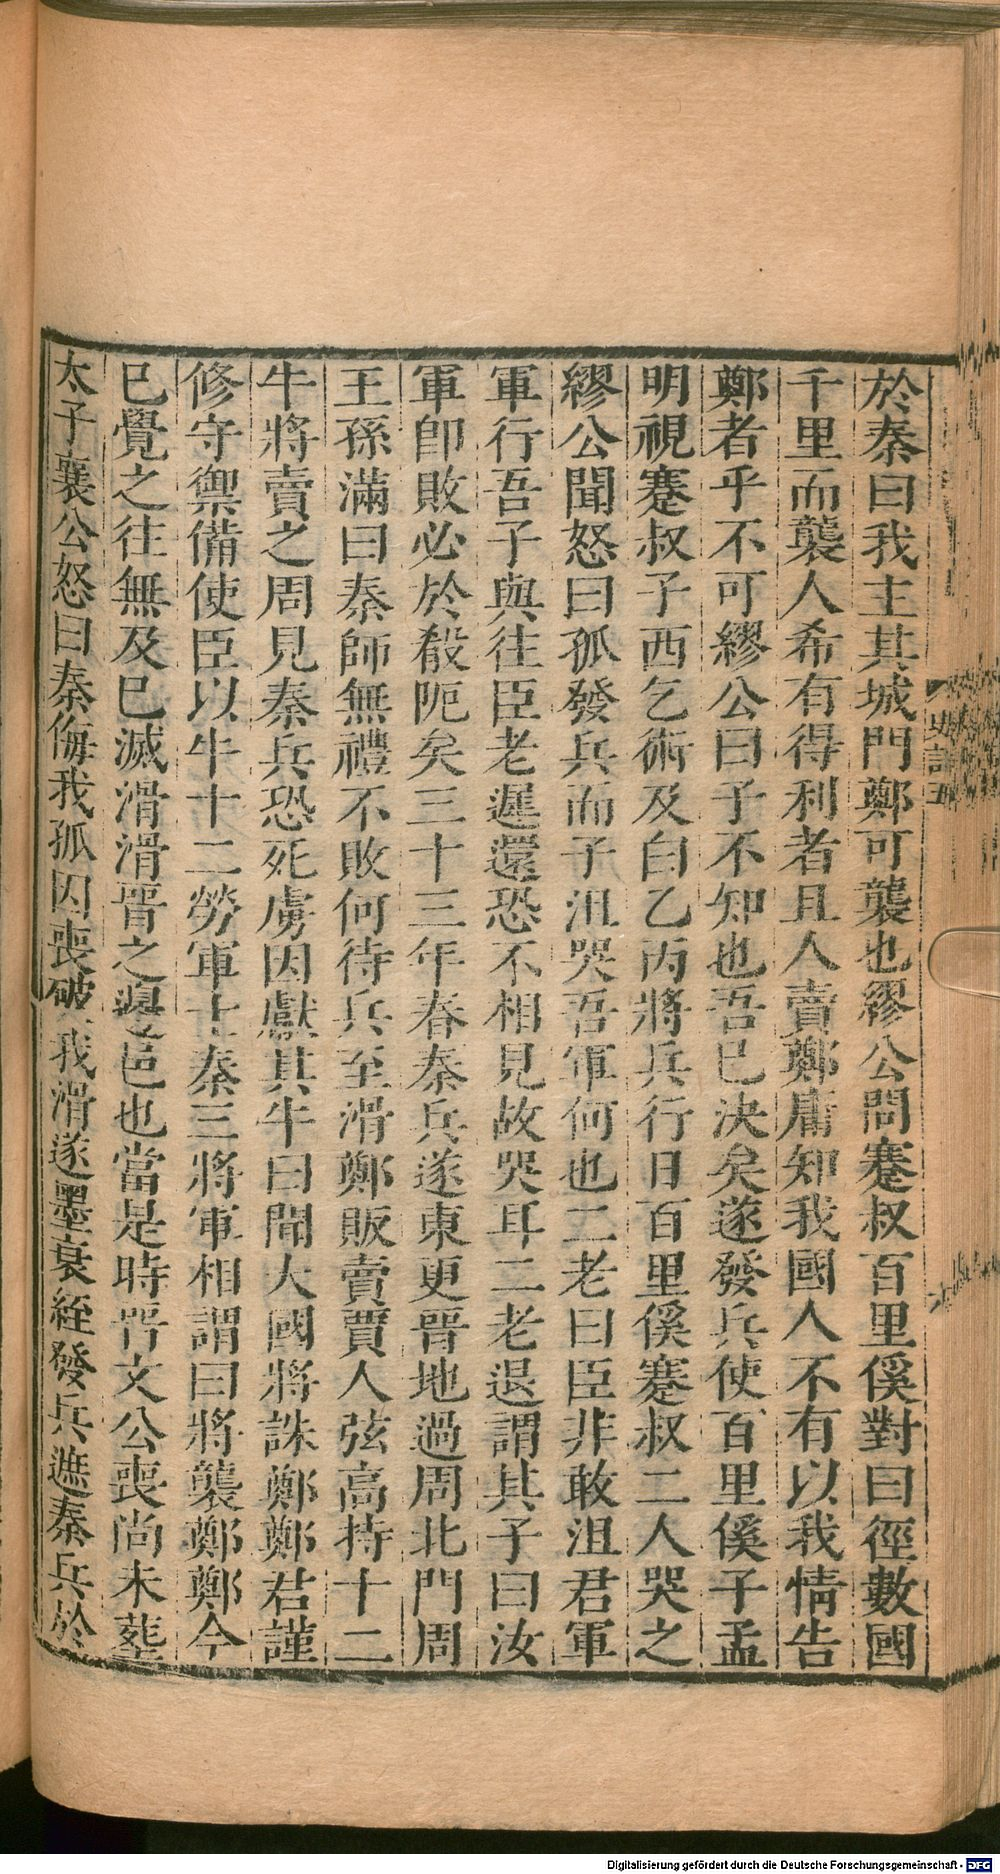 於秦曰我主其城門鄭可襲也繆公問蹇叔百里傒對曰徑數國
千里而襲人希有得利者且人賣鄭庸知我國人不有以我情告
鄭者乎不可繆公曰子不知也吾已決矣遂發兵使百里傒子孟
明視蹇叔子西乞術及白乙丙將兵行日百里傒蹇叔二人哭之
繆公聞怒曰孤發兵而子沮哭吾軍何也二老曰臣非敢沮君軍
軍行吾子與往臣老遲還恐不相見故哭耳二老退謂其子曰汝
軍卽敗必於殽阨矣三十三年春秦兵遂東更晉地過周北門周
王孫滿曰秦師無禮不敗何待兵至滑鄭販賣賈人弦高持十二
牛將賣之周見秦兵恐死虜因獻其牛曰聞大國將誅鄭鄭君謹
修守禦備使臣以牛十二勞軍士秦三將軍相謂曰將襲鄭鄭今
已覺之往無及已滅滑滑晉之邊邑也當是時晉文公喪尚未葬
太子襄公怒曰秦侮我孤因喪破我滑遂墨衰絰發兵遮秦兵於
史記五
Digitalisierung gefördert durch die Deutsche Forschungsgemeinschaft - DFG